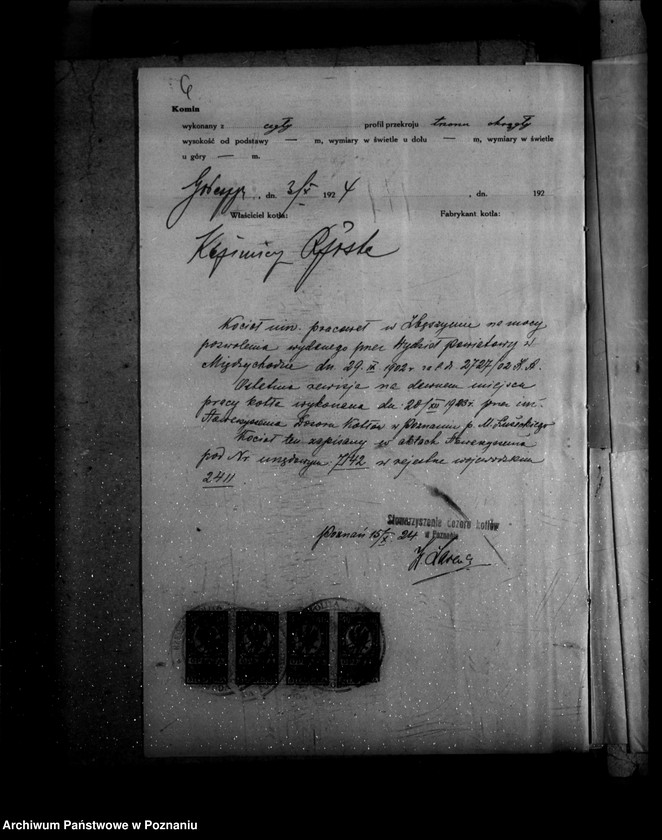 6
Komin
wykonany z cegły profil przekroju trzonu okrągły
wysokość od podstawy — m, wymiary w świetle u dołu — m, wymiary w świetle
u góry — m.
, dn. 3/X 1924 , dn. 192
Właściciel kotła: Fabrykant kotła:
Kazimierz
Kocioł inn. pracował w Zbąszyniu na mocy
pozwolenia wydanego przez Wydział Powiatowy w
Międzychodzie dn. 29. IX 1902 r. 2727/02 K.A.
Ostatnia rewizja na dawnem miejscu
pracy kotła wykonana dn. 20/XII 1923 przez inż.
Stowarzyszenia Dozoru Kotłów w Poznaniu p. M.
Kocioł ten zapisany w aktach Stowarzyszenia
pod Nr urzędowym 7142 w rejestrze wojewódzkim
2411
Stowarzyszenie dozoru kotłów
w Poznaniu
Poznań 15/X 24
Archiwum Państwowe w Poznaniu